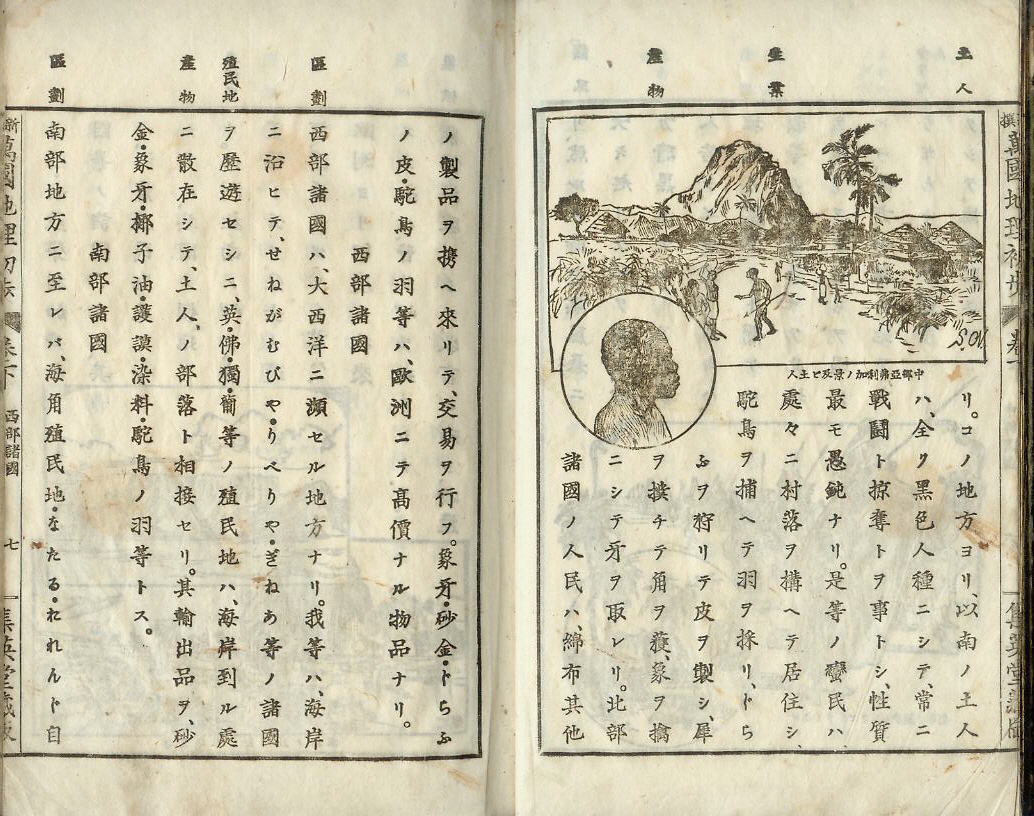 土人
生業
産物
中部亞弗利加ノ景及ビ土人
リ。コノ地方ヨリ、以南ノ土人
ハ、全ク黑色人種ニシテ、常ニ
戰鬪ト掠奪トヲ事トシ、性質
最モ愚鈍ナリ。是等ノ蠻民ハ、
處々ニ村落ヲ搆ヘテ居住シ、
駝鳥ヲ捕ヘテ羽ヲ採リ、とら
ふヲ狩リテ皮ヲ製シ、犀
ヲ撲チテ角ヲ獲、象ヲ擒
ニシテ牙ヲ取レリ。北部
諸國ノ人民ハ、綿布其他
區劃
殖民地
産物
區劃
ノ製品ヲ携ヘ來リテ、交易ヲ行フ。象牙・砂金・とらふ
ノ皮駝鳥ノ羽等ハ、歐洲ニテ高價ナル物品ナリ。
西部諸國
西部諸國ハ、大西洋ニ瀕セル地方ナリ。我等ハ、海岸
ニ沿ヒテ、せねがむびや・りべりや・ぎねあ等ノ諸國
ヲ歷遊セシニ、英・佛・獨・葡等ノ殖民地ハ、海岸到ル處
ニ散在シテ、土人ノ部落ト相接セリ。其輸出品ヲ、砂
金・象牙・椰子油・護謨・染料・駝鳥ノ羽等トス。
南部諸國
南部地方ニ至レバ、海角殖民地・なたる・おれんト自
西部諸國
七